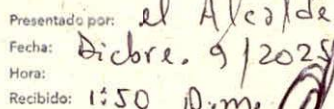 Presentado por: el Alcalde
Fecha: Dicbre. 9/2025
Hora:
Recibido: 1:50 p.m.